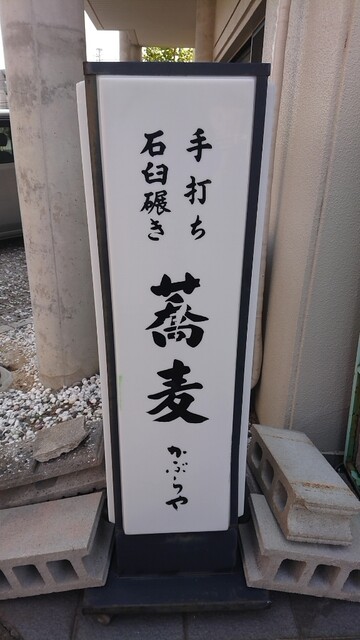 手打ち
石臼碾き
蕎麦
かぶらや